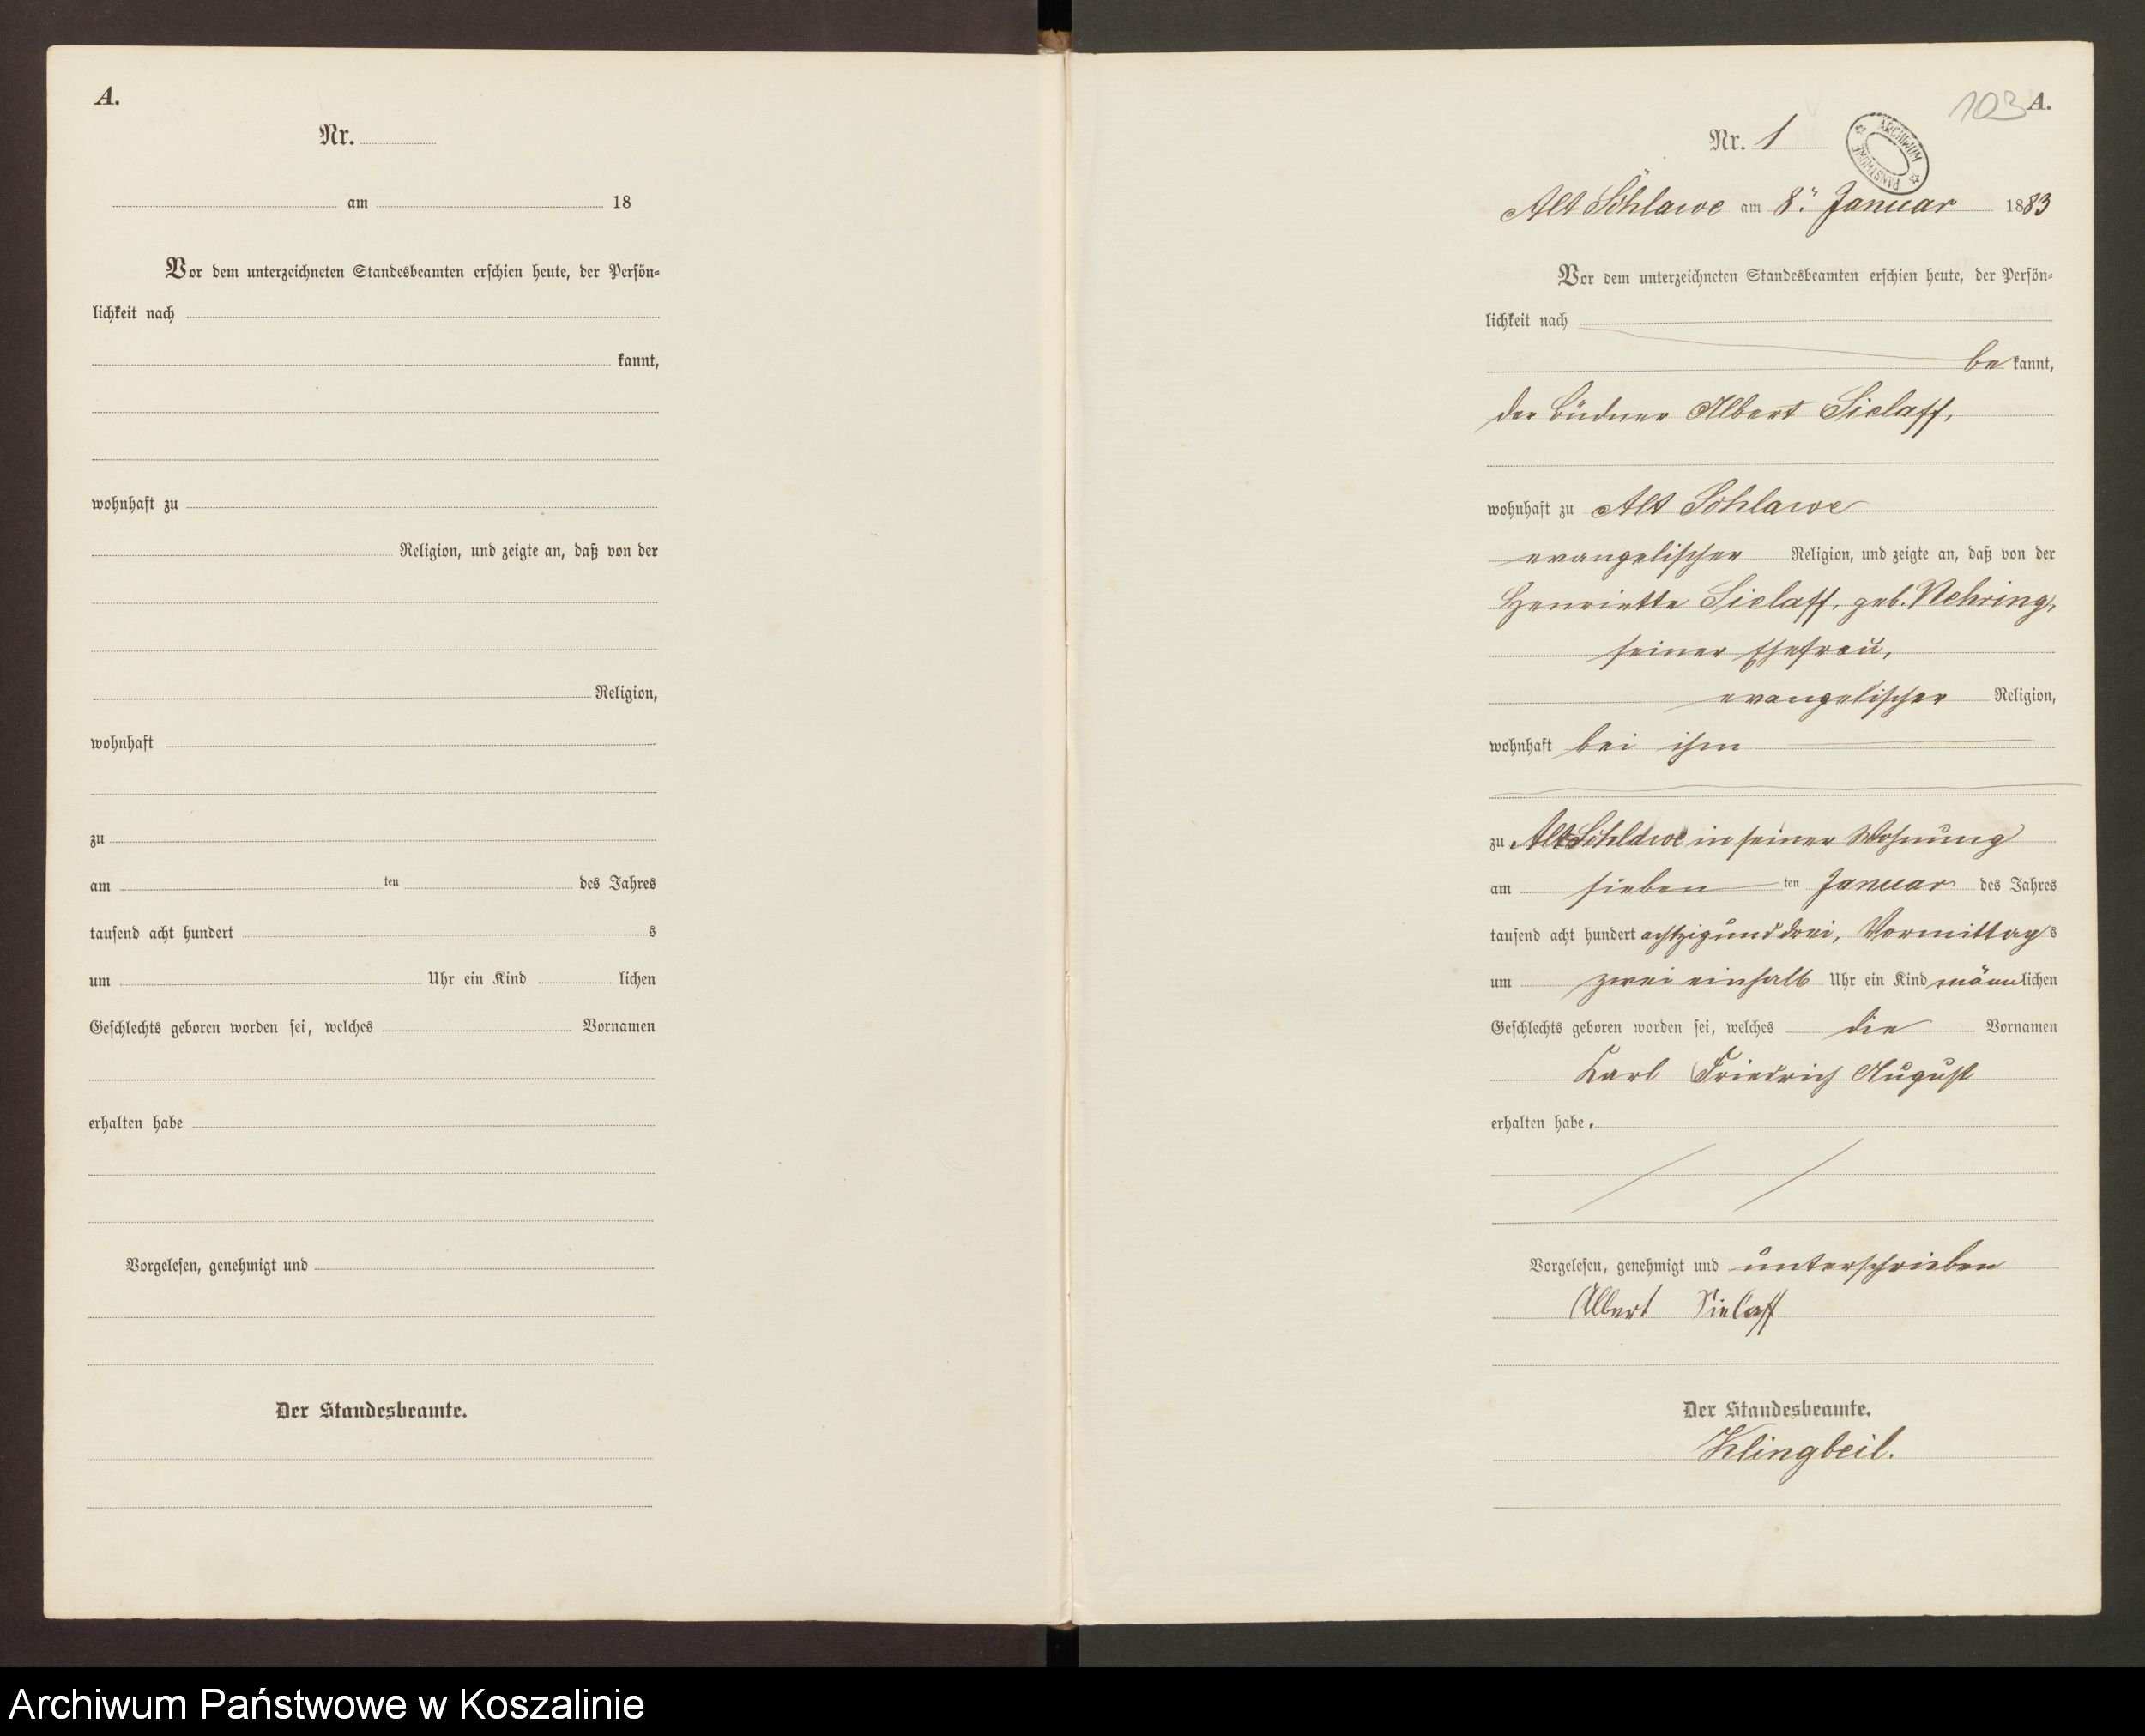 A.
Nr.
am 18
Vor dem unterzeichneten Standesbeamten erschien heute, der Persön-
lichkeit nach
kannt,
wohnhaft zu
Religion, und zeigte an, daß von der
Religion,
wohnhaft
zu
am ten des Jahres
tausend acht hundert s
um Uhr ein Kind lichen
Geschlechts geboren worden sei, welches Vornamen
erhalten habe
Vorgelesen, genehmigt und
Der Standesbeamte.
103 A.
Nr. 1
ARCHIWUM PAŃSTWOWE
Alt Schlawe am 8. Januar 1883
Vor dem unterzeichneten Standesbeamten erschien heute, der Persön-
lichkeit nach
be kannt,
der Büdner Albert Sielaff,
wohnhaft zu Alt Schlawe
evangelischer Religion, und zeigte an, daß von der
Henriette Sielaff, geb. Nehring,
seiner Ehefrau,
evangelischer Religion,
wohnhaft bei ihm
zu Alt Schlawe in seiner Wohnung
am sieben ten Januar des Jahres
tausend acht hundert achtzig und drei, Vormittags
um zwei einhalb Uhr ein Kind männlichen
Geschlechts geboren worden sei, welches die Vornamen
Karl Friedrich August
erhalten habe.
Vorgelesen, genehmigt und unterschrieben
Albert Sielaff
Der Standesbeamte.
Klingbeil.
Archiwum Państwowe w Koszalinie